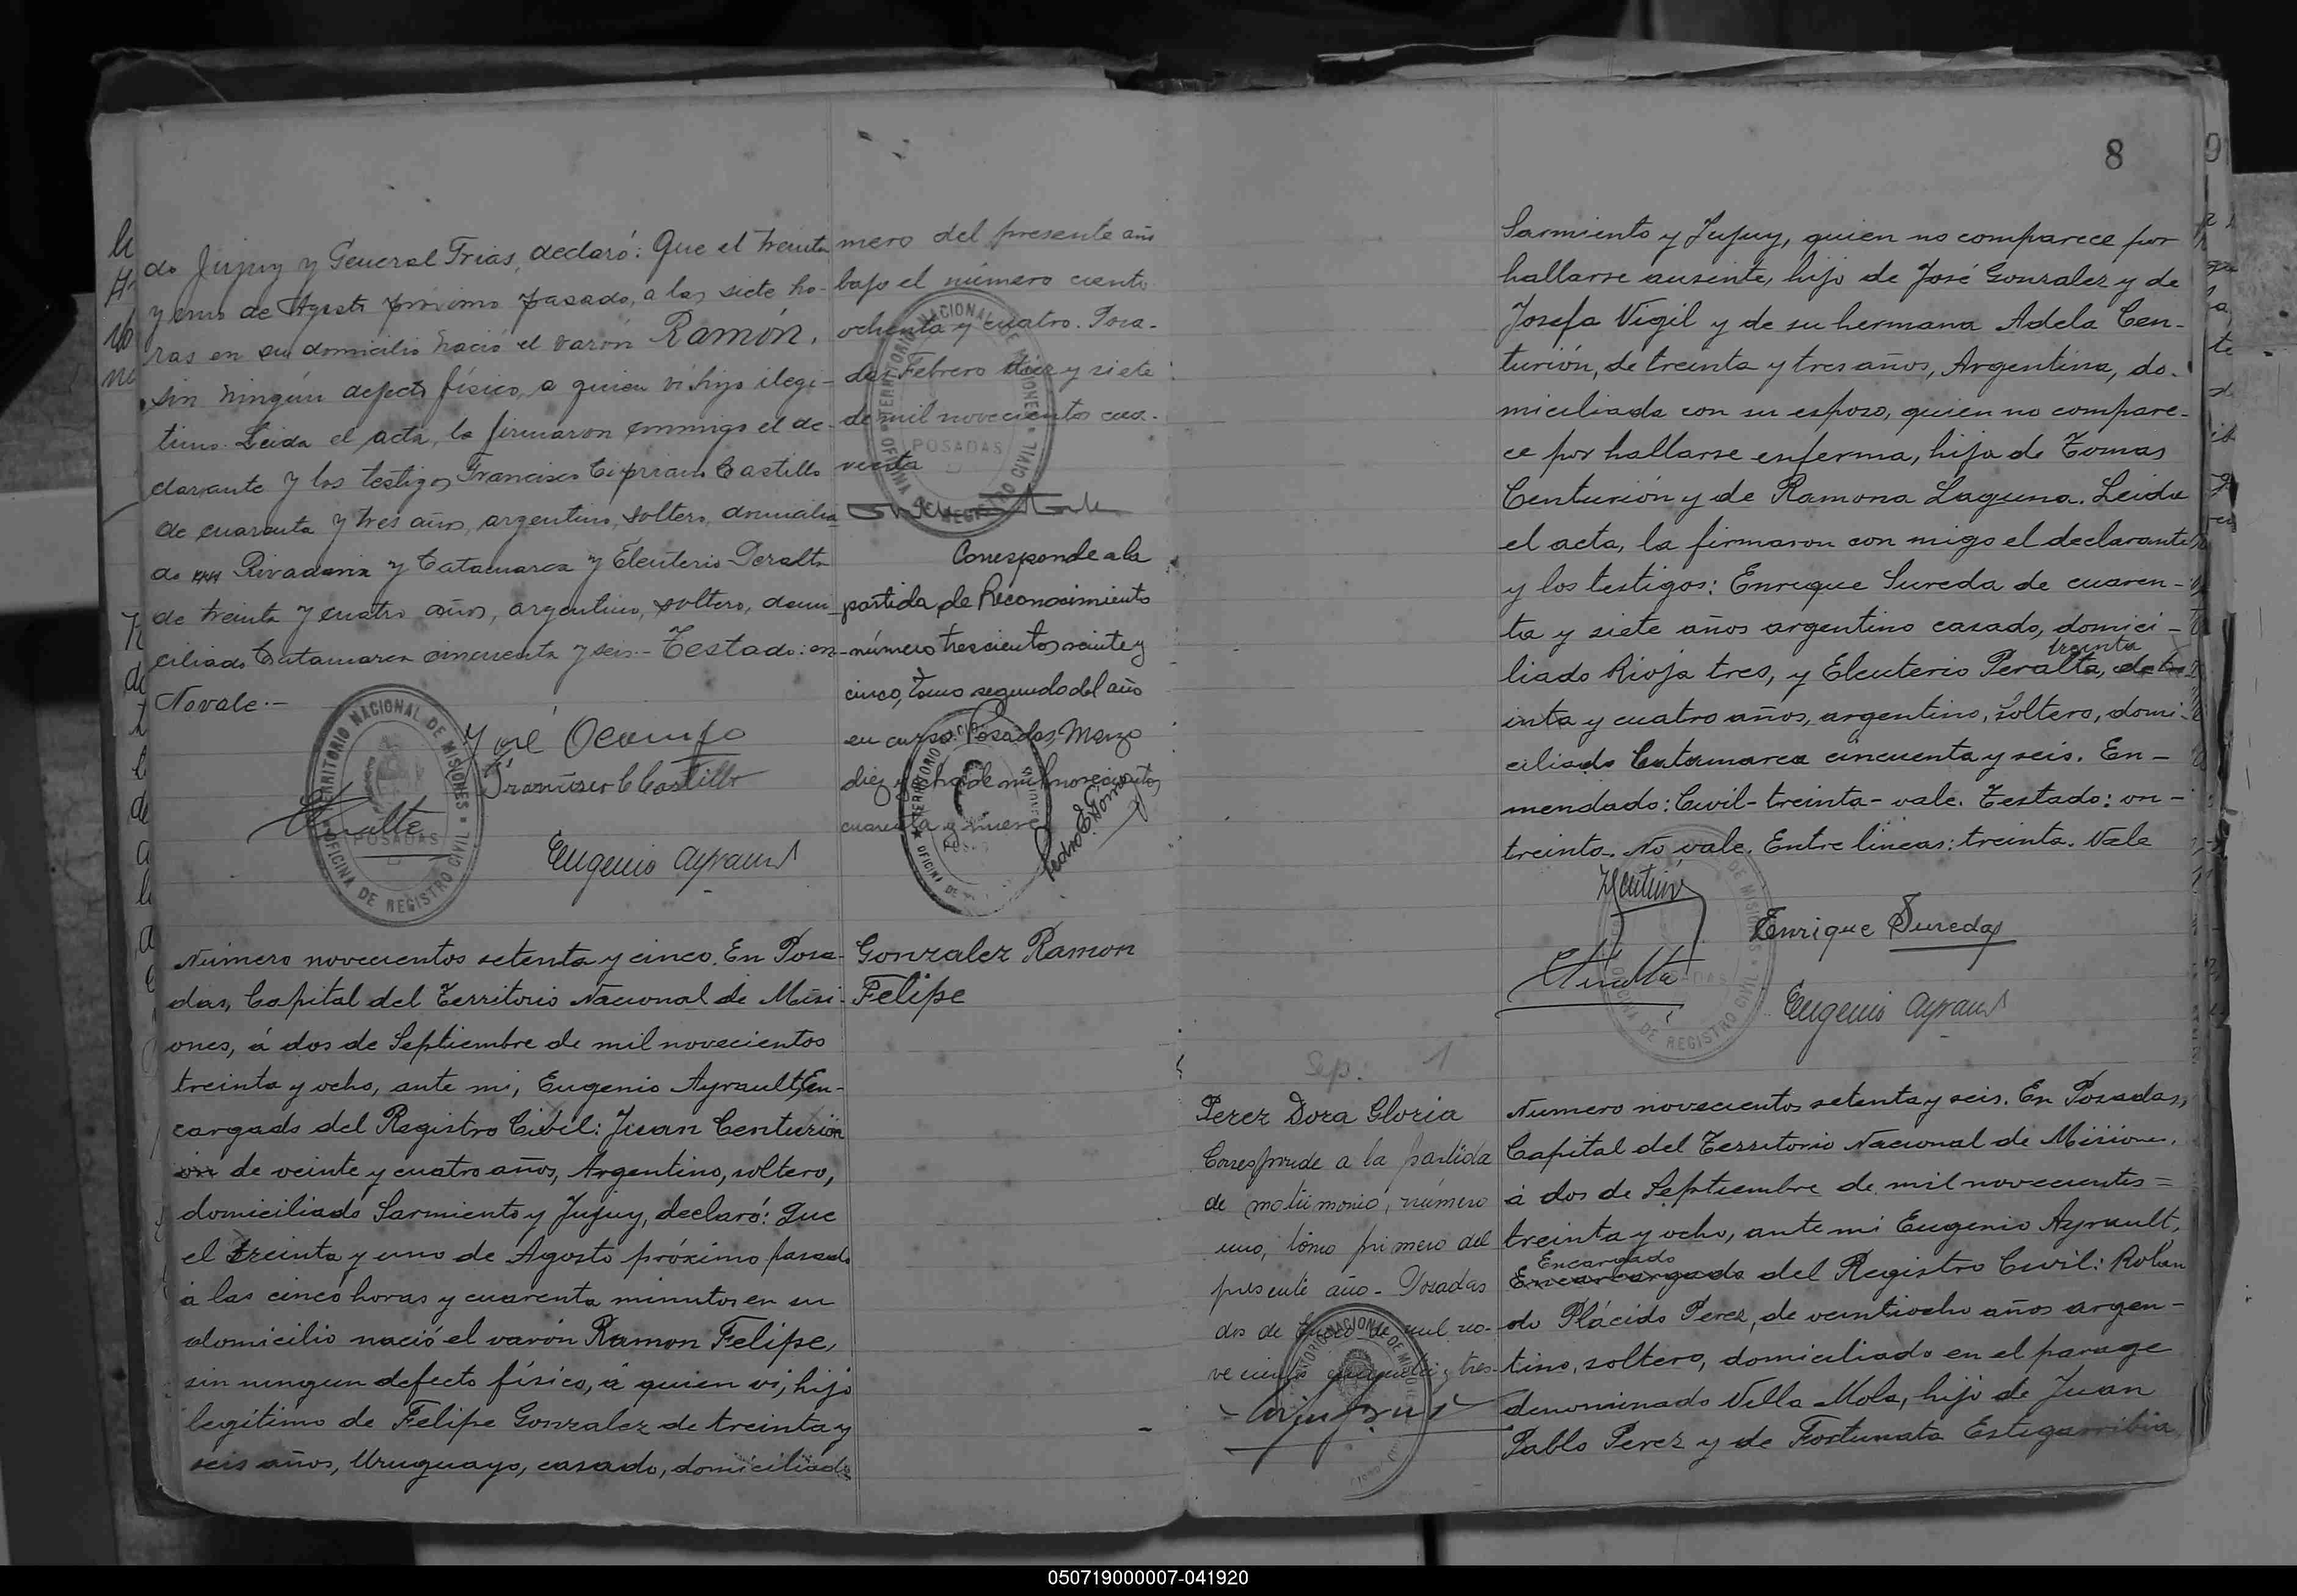 do Jujuy y General Frias, declaró: Que el treinta
y uno de Agosto próximo pasado, a las siete ho-
ras en su domicilio nació el varón Ramón,
sin ningún defecto físico, a quien vi hijo ilegi-
timo. Leida el acta, la firmaron conmigo el de-
clarante y los testigos Francisco Cipriano Castillo
de cuarenta y tres años, argentino, soltero, domicilia
do Rivadavia y Catamarca y Eleuterio Peralta
de treinta y cuatro años, argentino, soltero, domi-
ciliado Catamarca cincuenta y seis.- Testado: en-
No vale.-
José Ocampo
Francisco C Castillo
Peralta
Eugenio Ayrault
TERRITORIO NACIONAL DE MISIONES
POSADAS
OFICINA DE REGISTRO CIVIL
mero del presente año
bajo el número ciento
ochenta y cuatro. Posa-
das Febrero diez y siete
de mil novecientos cua-
renta
TERRITORIO NACIONAL DE MISIONES
POSADAS
OFICINA DE REGISTRO CIVIL
Corresponde a la
partida de Reconocimiento
número trescientos veinte y
cinco, tomo segundo del año
en curso. Posadas, Marzo
diez y ocho de mil novecientos
cuarenta y nueve
Numero novecientos setenta y cinco. En Posa-
das, Capital del Territorio Nacional de Misi-
ones, á dos de Septiembre de mil novecientos
treinta y ocho, ante mi, Eugenio Ayrault, En-
cargado del Registro Civil: Juan Centurión
ión de veinte y cuatro años, Argentino, soltero,
domiciliado Sarmiento y Jujuy, declaró: Que
el treinta y uno de Agosto próximo pasado
á las cinco horas y cuarenta minutos en su
domicilio nació el varón Ramon Felipe,
sin ningun defecto físico, á quien vi, hijo
legítimo de Felipe Gonzalez de treinta y
seis años, Uruguayo, casado, domiciliado
Gonzalez Ramon
Felipe
8
Sarmiento y Jujuy, quien no comparece por
hallarse ausente, hijo de José Gonzalez y de
Josefa Vigil y de su hermana Adela Cen-
turión, de treinta y tres años, Argentina, do-
miciliada con su esposo, quien no compare-
ce por hallarse enferma, hija de Tomas
Centurión y de Ramona Laguna. Leida
el acta, la firmaron con migo el declarante
y los testigos: Enrique Sureda de cuaren-
ta y siete años argentino casado, domici-
liado Rioja tres, y Eleuterio Peralta, de tre
treinta
inta y cuatro años, argentino, soltero, domi-
ciliado Catamarca cincuenta y seis. En-
mendado: Civil-treinta-vale. Testado: on-
treinta. No vale. Entre lineas: treinta. Vale
JCenturión
Enrique Sureda
Peralta
Eugenio Ayrault
Sep. 1
Perez Dora Gloria
Corresponde a la partida
de matrimonio, número
uno, tomo primero del
presente año - Posadas
dos de Enero de mil no-
vecientos cincuenta y tres-
Numero novecientos setenta y seis. En Posadas,
Capital del Territorio Nacional de Misiones,
á dos de Septiembre de mil novecientos=
treinta y ocho, ante mi Eugenio Ayrault,
Encargado
Encarcargado del Registro Civil: Rolan
do Plácido Perez, de veintiocho años argen-
tino, soltero, domiciliado en el parage
denominado Villa Mola, hijo de Juan
Pablo Perez y de Fortunata Estigarribia
050719000007-041920